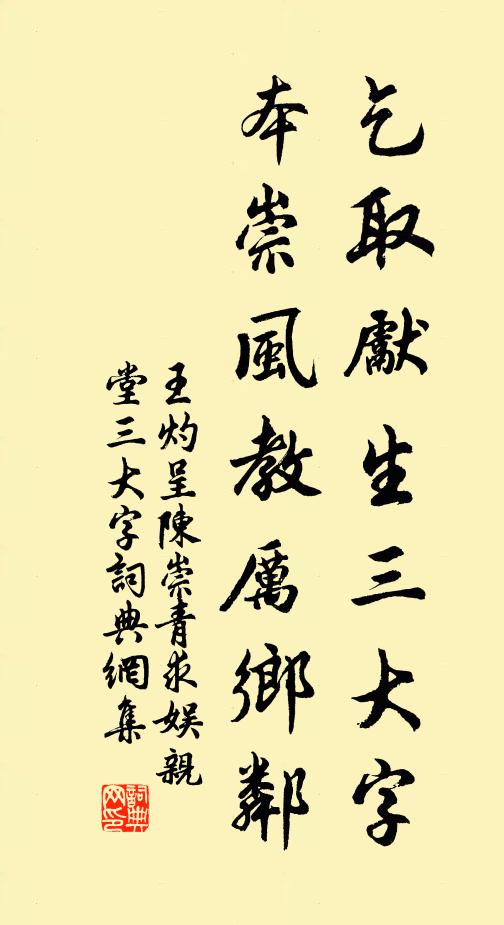 乞取獻生三大字
本崇風教厲鄉鄰
王灼呈陳崇青求娛親
堂三大字詞典網集
詞典网印